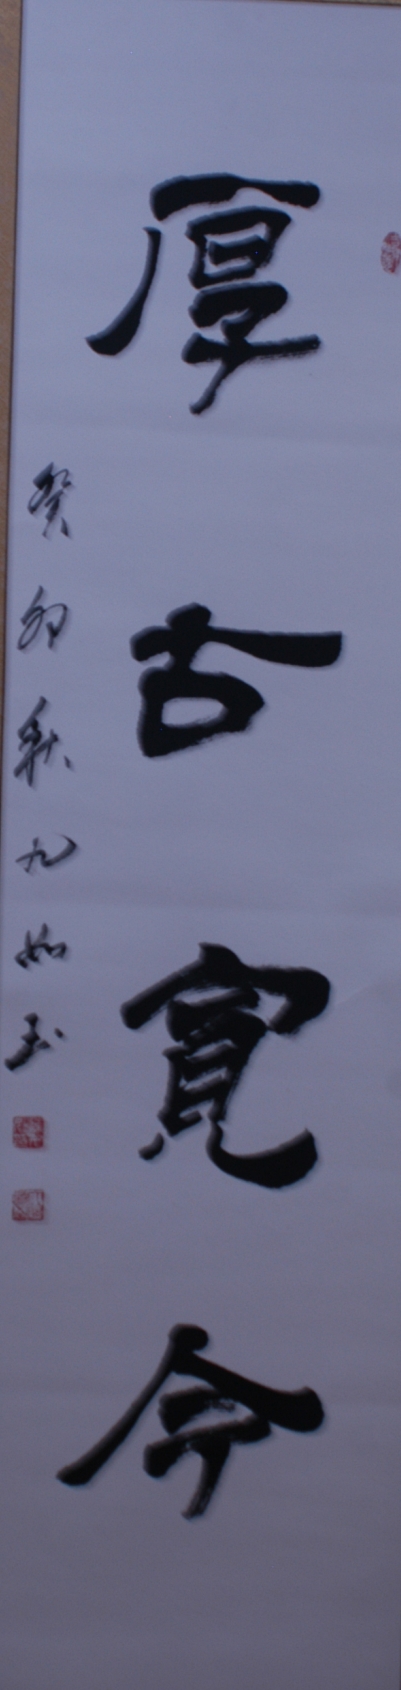 厚古寬今
癸卯秋九如玉